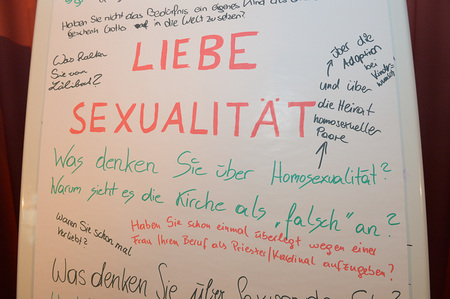 Haben Sie nicht das Bedürfnis ein eigenes Kind als
Geschenk Gottes in die Welt zu setzen?
Was halten
Sie vom
Zölibat?
LIEBE
SEXUALITÄT
über die
Adoption
bei
Kinder-
wunsch?
und über
die Heirat
homosexueller
Paare
Was denken Sie über Homosexualität?
Warum sieht es die Kirche als „falsch" an?
Waren Sie schon mal
verliebt?
Haben Sie schon einmal überlegt wegen einer
Frau Ihren Beruf als Priester/Kardinal aufzugeben?
Was denken Sie über